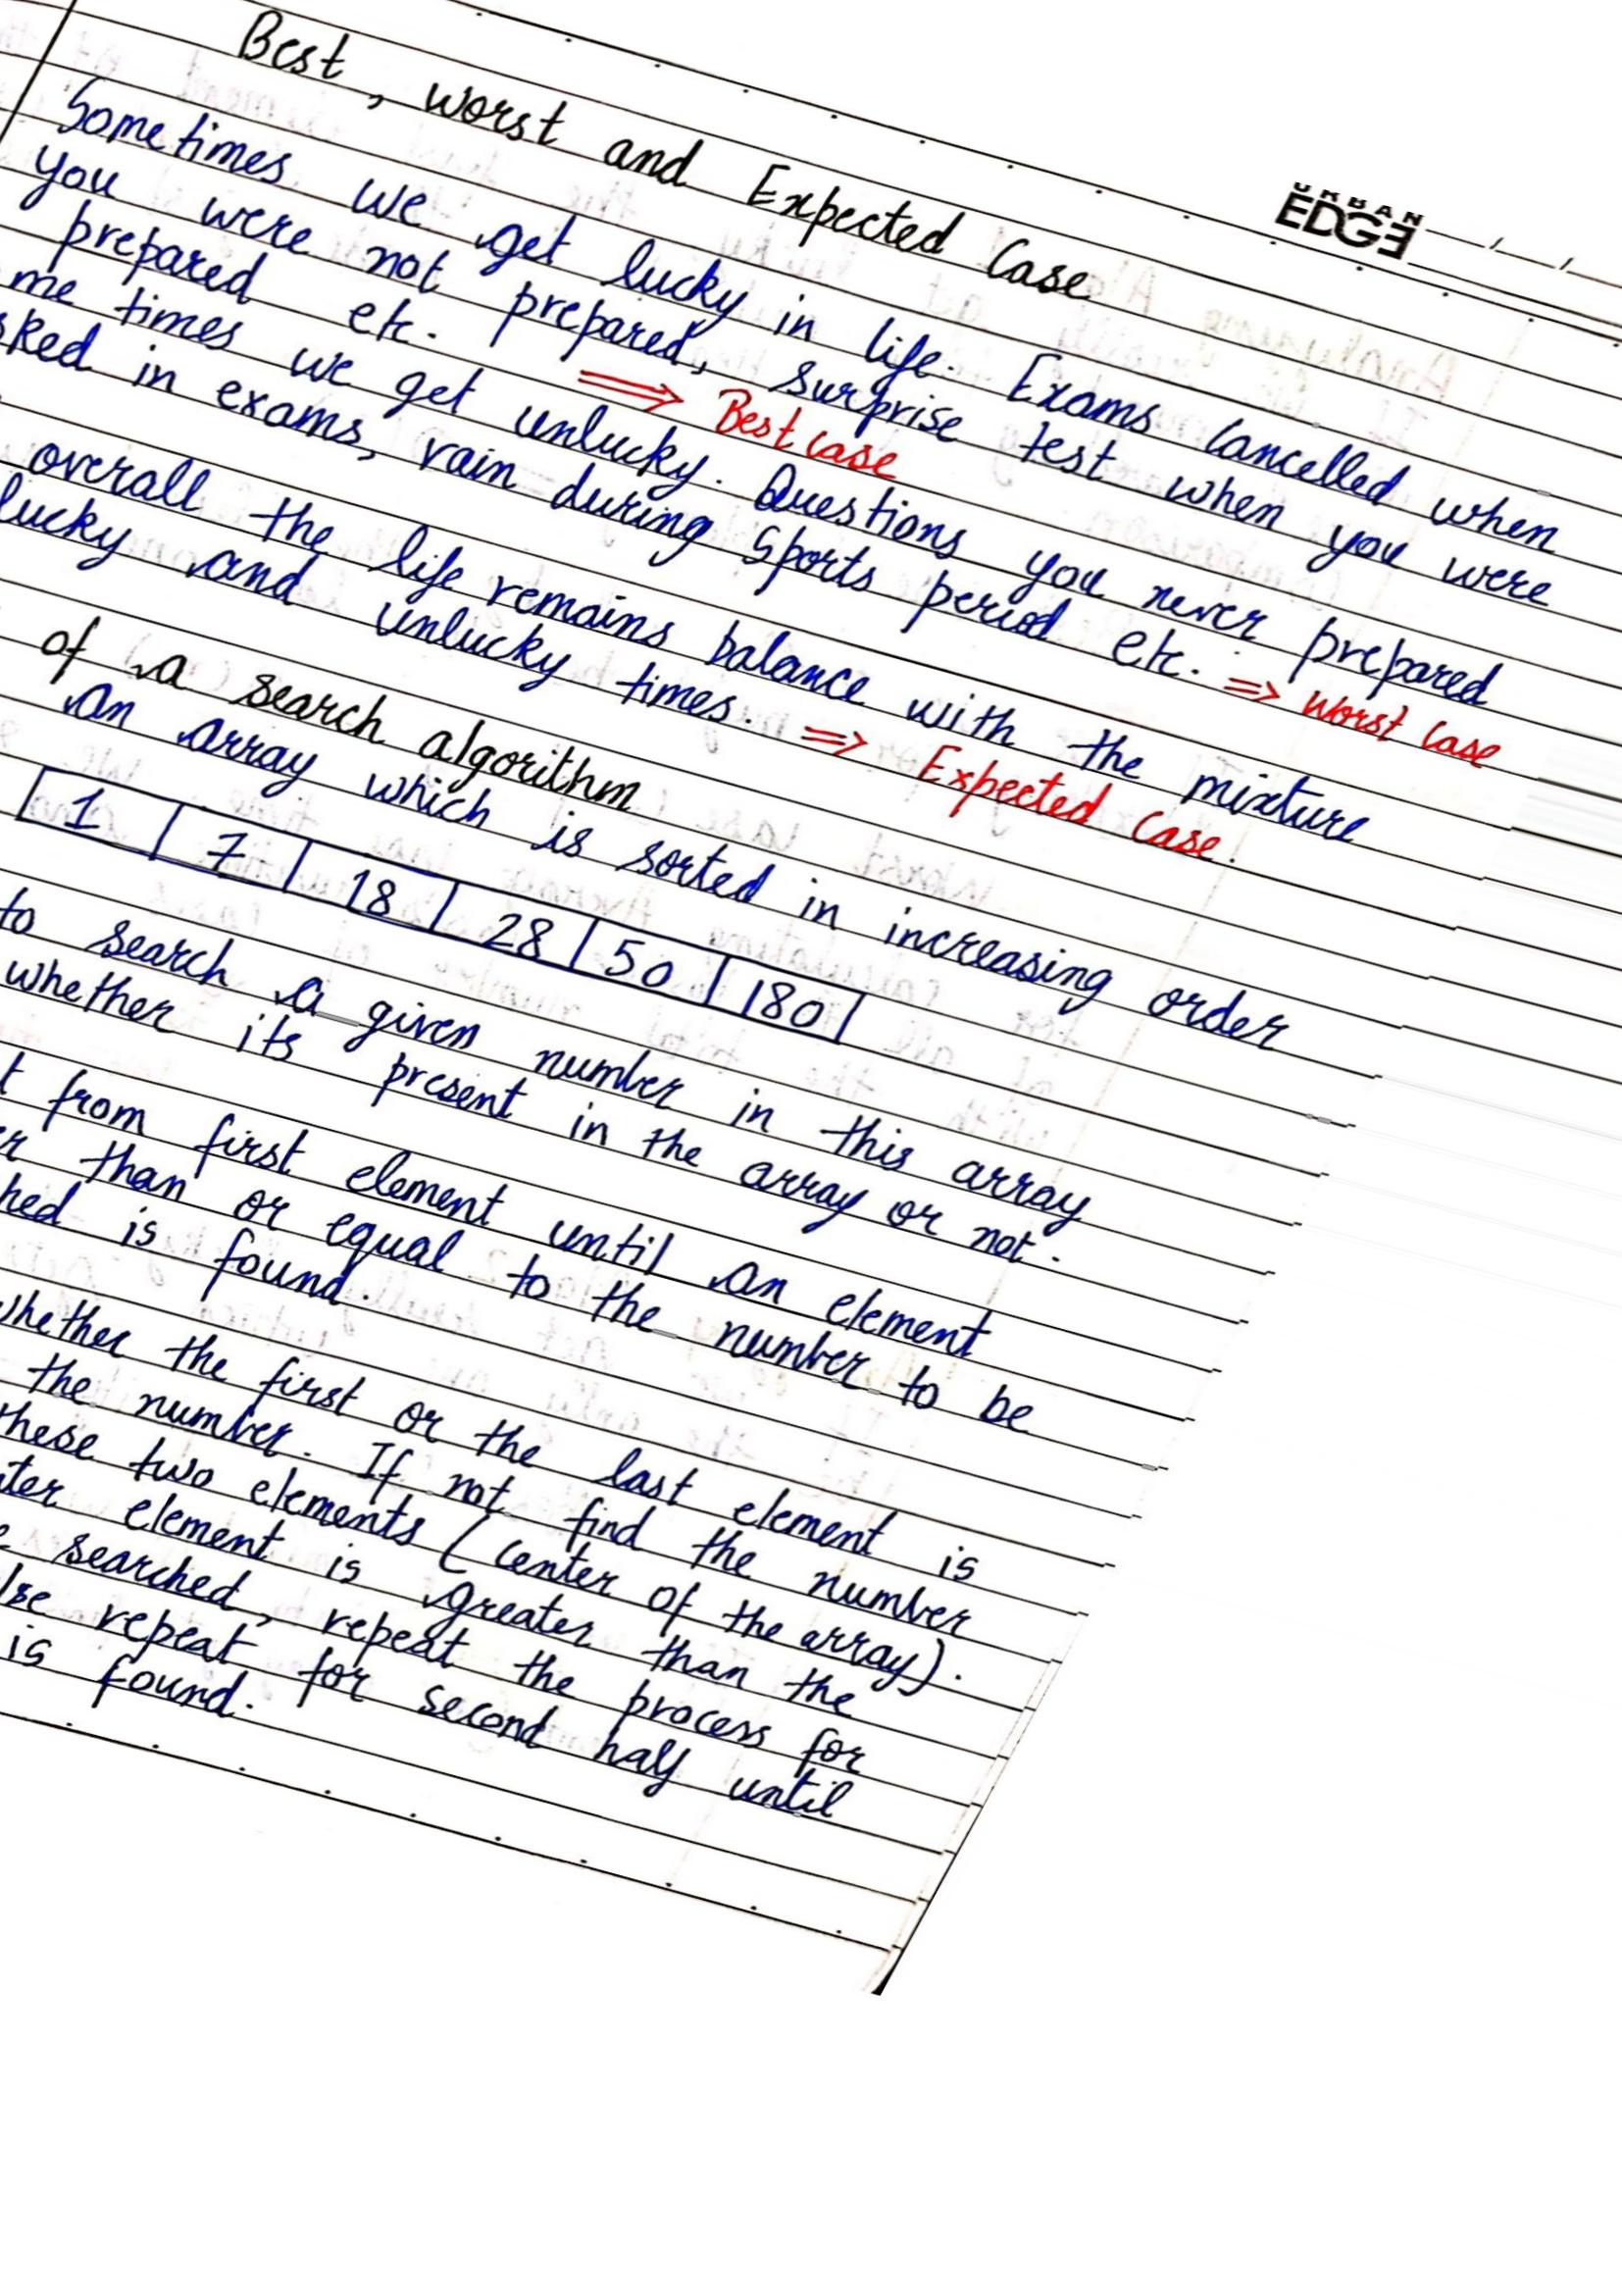 Best, worst and Expected Case
URBAN
EDGE
Sometimes we get lucky in life. Exams cancelled when
you were not prepared, surprise test when you were
prepared etc. ⟹ Best case
me times we get unlucky. Questions you never prepared
sked in exams, rain during Sports period etc. => Worst Case
overall the life remains balance with the mixture
lucky and unlucky times. => Expected Case.
of a search algorithm
an array which is sorted in increasing order
1 7 18 28 50 180
to search a given number in this array
whether its present in the array or not.
t from first element until an element
er than or equal to the number to be
hed is found.
whether the first or the last element is
the number. If not find the number
these two elements (center of the array).
ter element is greater than the
searched, repeat the process for
lse repeat for second half until
is found.